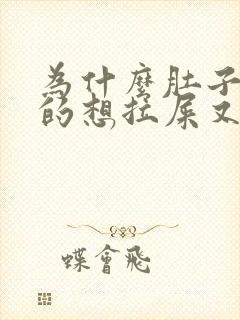 為什麼肚子
的想拉屎又
蝶會飛